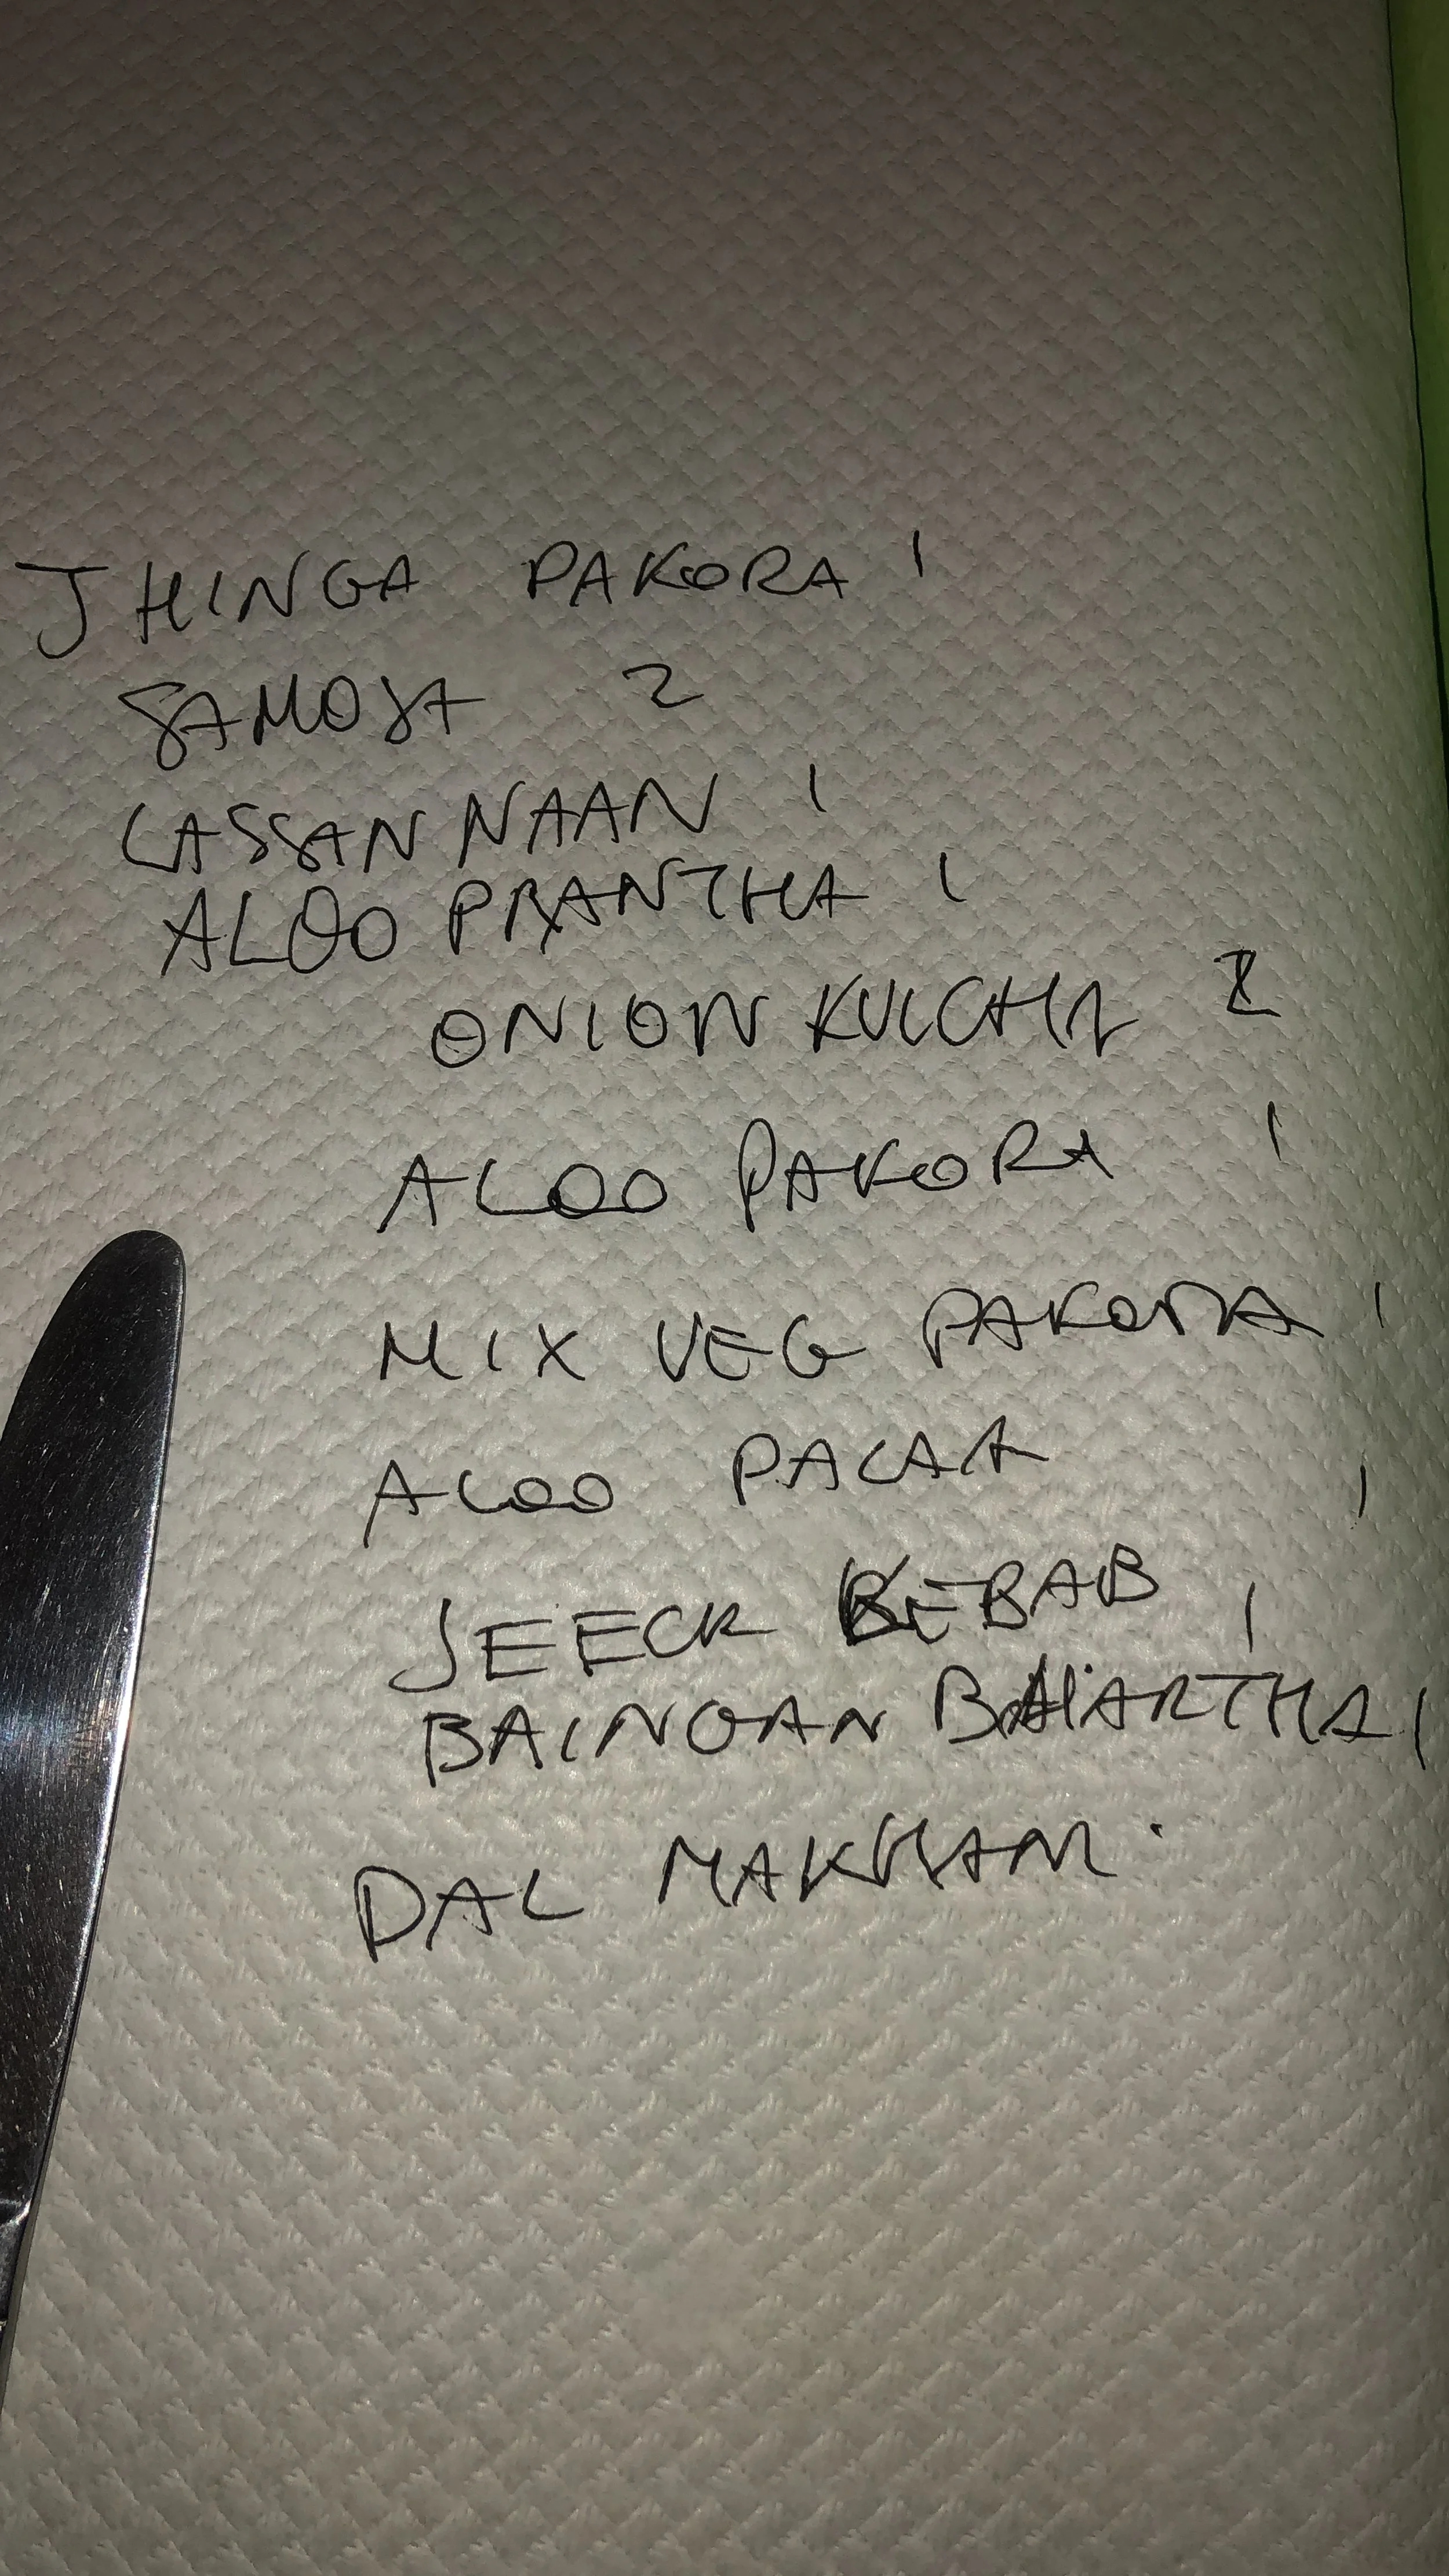 JHINGA PAKORA 1
SAMOSA 2
LASSAN NAAN 1
ALOO PRANTHA 1
ONION KULCHA 2
ALOO PAKORA 1
MIX VEG PAKORA 1
ALOO PALAK 1
SEECK KEBAB 1
BAINGAN BHARTHA 1
DAL MAKHANI